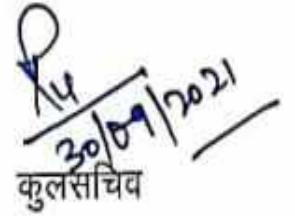 30/09/2021
कुलसचिव